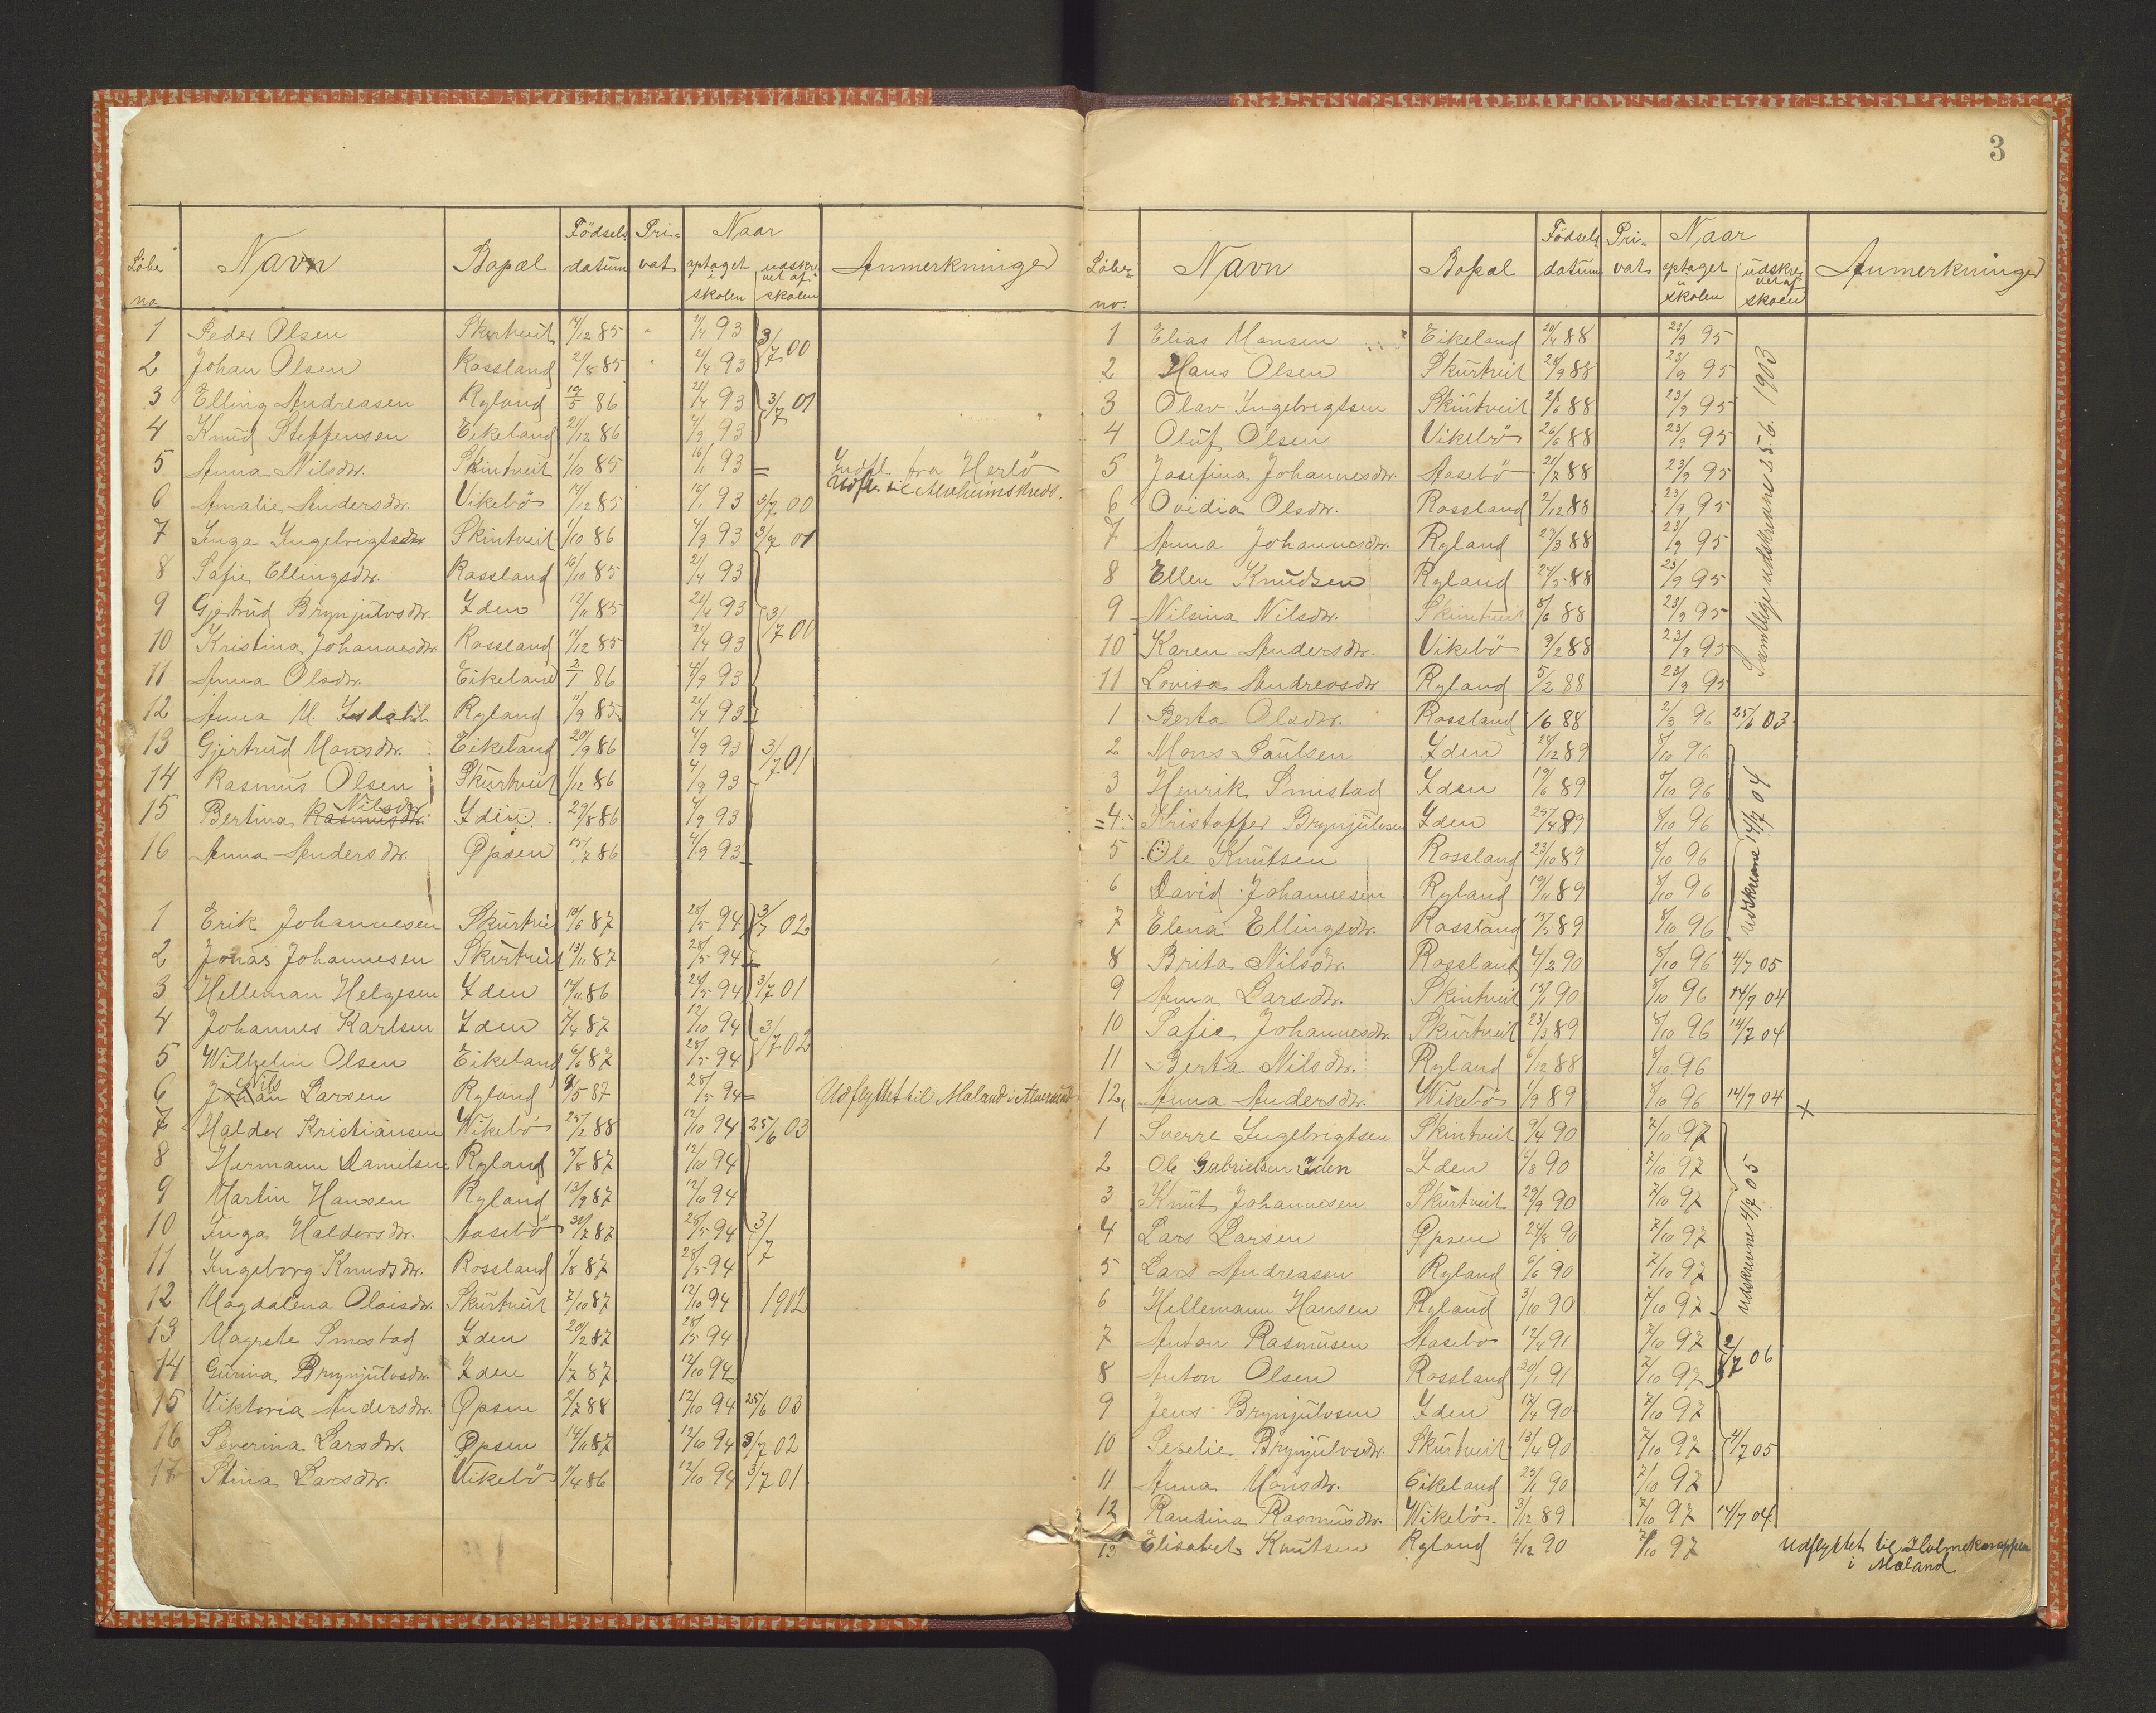 Løbe no. Navn Bopæl Fødsels datum Pri- vat Naar optaget i skolen udskre- vet af skolen Anmerkninger
1 Peder Olsen Skurtveit 14/12 85 21/4 93 3/7 00
2 Johan Olsen Rossland 21/8 85 21/4 93
3 Elling Andreasen Ryland 12/5 86 21/4 93 3/7 01
4 Knud Steffensen Eikeland 21/12 86 4/9 93
5 Anna Nilsdtr. Skintveit 1/10 85 16/1 93 = Indfl. fra Herlö
Udfl. til Alvheimskreds.
6 Amalie Andersdtr. Vikebö 14/12 85 16/1 93 3/7 00
7 Inga Ingebrigtsdtr. Skintveit 1/10 86 4/9 93 3/7 01
8 Sofie Ellingsdtr. Rossland 16/10 85 21/4 93
9 Gjertrud Brynjulvsdtr. Iden 12/11 85 21/4 93 3/7 00
10 Kristina Johannesdtr. Rossland 11/12 85 21/4 93
11 Anna Olsdtr. Eikeland 2/1 86 4/9 93
12 Anna M. Ryland 11/9 85 21/4 93
13 Gjertrud Monsdtr. Eikeland 20/9 86 4/9 93 3/7 01
14 Rasmus Olsen Skurtveit 1/12 86 4/9 93
15 Bertina Rasmusdtr. Nilsdtr. Iden 29/8 86 4/9 93
16 Anna Andersdtr. Opsen 15/7 86 4/9 93
1 Erik Johannesen Skurtveit 10/6 87 28/5 94 3/7 02
2 Jonas Johannesen Skurtveit 13/11 87 28/5 94
3 Helleman Helgesen Iden 14/11 86 28/5 94 3/7 01
4 Johannes Karlsen Iden 2/4 87 12/10 94 3/7 02
5 Wilhelm Olsen Eikeland 6/6 87 28/5 94
6 Johan Nils Larsen Ryland 9/5 87 28/5 94 = Udflyttet til Mæland i Alversund
7 Haldor Kristiansen Wikebö 25/2 88 12/10 94 25/6 03
8 Hermann Danielsen Ryland 5/8 87 12/10 94
9 Martin Hansen Ryland 13/9 87 12/10 94
10 Inga Haldorsdtr. Aasebö 30/7 87 28/5 94 3/7
11 Ingeborg Knudsdtr. Rossland 1/8 87 28/5 94
12 Magdalena Olaisdtr. Skurtveit 7/10 87 12/10 94 1902
13 Magrete Smistad Iden 20/2 87 28/5 94
14 Gurina Brynjulvsdtr. Iden 1/7 87 12/10 94
15 Viktoria Andersdtr. Opsen 2/7 88 12/10 94 25/6 03
16 Severina Larsdtr. Opsen 14/11 87 12/10 94 3/7 02
17 Stina Larsdtr. Vikebö 11/4 86 12/10 94 3/7 01
3
Løbe- no. Navn Bopæl Fødsels datum Pri- vat Naar optaget i skolen udskre- vet af skolen Anmerkninger
1 Elias Monsen Eikeland 20/4 88 23/9 95
2 Hans Olsen Skurtveit 28/9 88 23/9 95
3 Olav Ingebrigtsen Skintveit 21/6 88 23/9 95
4 Oluf Olsen Vikebö 26/6 88 23/9 95
5 Josefina Johannesdtr. Aasebö 21/7 88 23/9 95
6 Ovidia Olsdtr. Rossland 2/12 88 23/9 95
7 Anna Johannesdtr. Ryland 27/3 88 23/9 95
8 Ellen Knudsen Ryland 24/5 88 23/9 95
9 Nilsina Nilsdtr. Skintveit 8/6 88 23/9 95
10 Karen Andersdtr. Vikebö 9/2 88 23/9 95
11 Lovisa Andreasdtr. Ryland 5/2 88 23/9 95
Samtlige udskrevne 25.6. 1903
1 Berta Olsdtr. Rossland 16 88 2/3 96 25/6 03
2 Mons Paulsen Iden 24/12 89 8/10 96
3 Henrik Smistad Iden 19/6 89 8/10 96
4 Kristoffer Brynjulvsen Iden 25/4 89 8/10 96
5 Ole Knutsen Rossland 23/10 89 8/10 96
6 David Johannesen Ryland 19/11 89 8/10 96
7 Elena Ellingsdtr. Rossland 15/5 89 8/10 96
udskrevne 14/7 04
8 Brita Nilsdtr. Rossland 4/2 90 8/10 96 4/7 05
9 Anna Larsdtr. Skintveit 15/1 90 8/10 96 14/7 04
10 Sofie Johannesdtr. Skurtveit 23/3 89 8/10 96 14/7 04
11 Berta Nilsdtr. Ryland 6/12 88 8/10 96
12 Anna Andersdtr. Wikebö 1/9 89 8/10 96 14/7 04 x
1 Sverre Ingebrigtsen Skintveit 9/4 90 7/10 97
2 Ole Gabrielsen Iden Iden 6/8 90 7/10 97
3 Knut Johannesen Skurtveit 29/9 90 7/10 97
4 Lars Larsen Opsen 24/8 90 7/10 97
5 Lars Andreasen Ryland 6/6 90 7/10 97
6 Hellemann Hansen Ryland 3/10 90 7/10 97
udskrevne 4/7 05
7 Anton Rasmusen Aasebö 12/4 91 7/10 97 2/7 06
8 Anton Olsen Rossland 20/1 91 7/10 97
9 Jens Brynjulvsen Iden 17/4 90 7/10 97
10 Seselie Brynjulvsdtr. Skurtveit 13/4 90 7/10 97 4/7 05
11 Anna Monsdtr. Eikeland 25/1 90 7/10 97
12 Randina Rasmusdtr. Wikebö 3/12 89 7/10 97 14/7 04
13 Elisabet Knutsen Ryland 6/12 90 7/10 97 Udflyttet til Holmeknappen
i Mæland